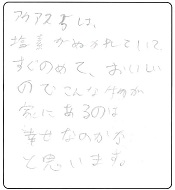 アクアス5は、
塩素がぬかれていて
すぐのめて、おいしい
のでこんなものが
家にあるのは
幸せなのかな
と思います。